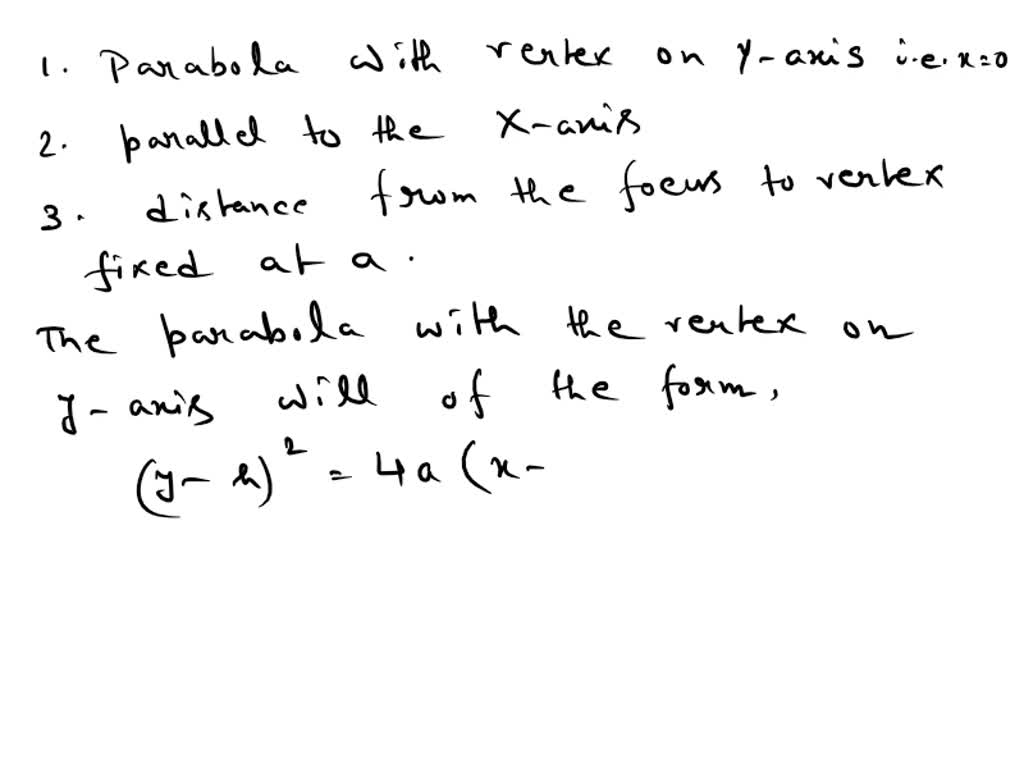 1. Parabola with vertex on Y-axis i.e. x=0
2. parallel to the X-axis
3. distance from the focus to vertex
fixed at a.
The parabola with the vertex on
y-axis will of the form,
(y-h)² = 4a (x-